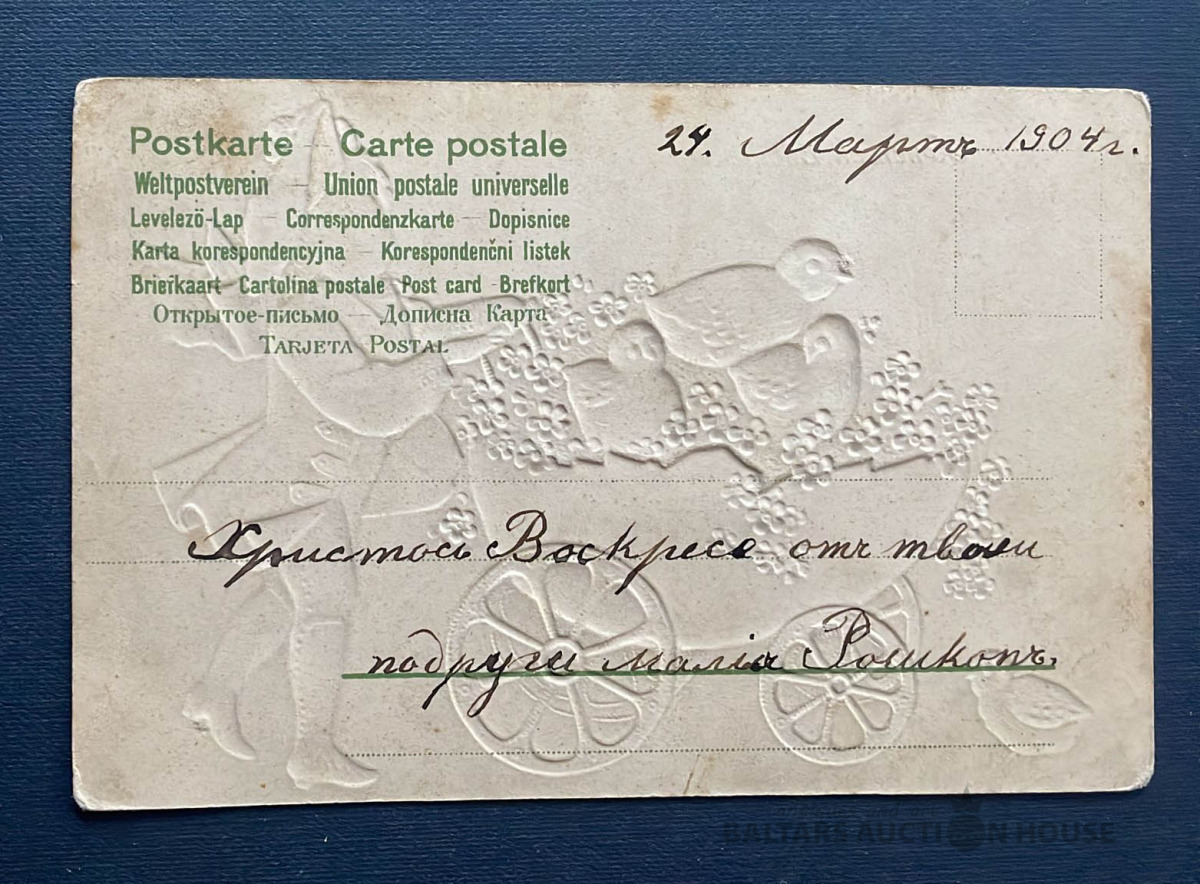 Postkarte — Carte postale
24. Мартъ 1904 г.
Weltpostverein — Union postale universelle
Levelező-Lap — Correspondenzkarte — Dopisnice
Karta korespondencyjna — Korespondenčni listek
Briefkaart — Cartolina postale — Post card — Brefkort
Открытое-письмо — Дописна Карта
TARJETA POSTAL
Христосъ Воскресе отъ твоеи
подруги
BALTARS AUCTION HOUSE